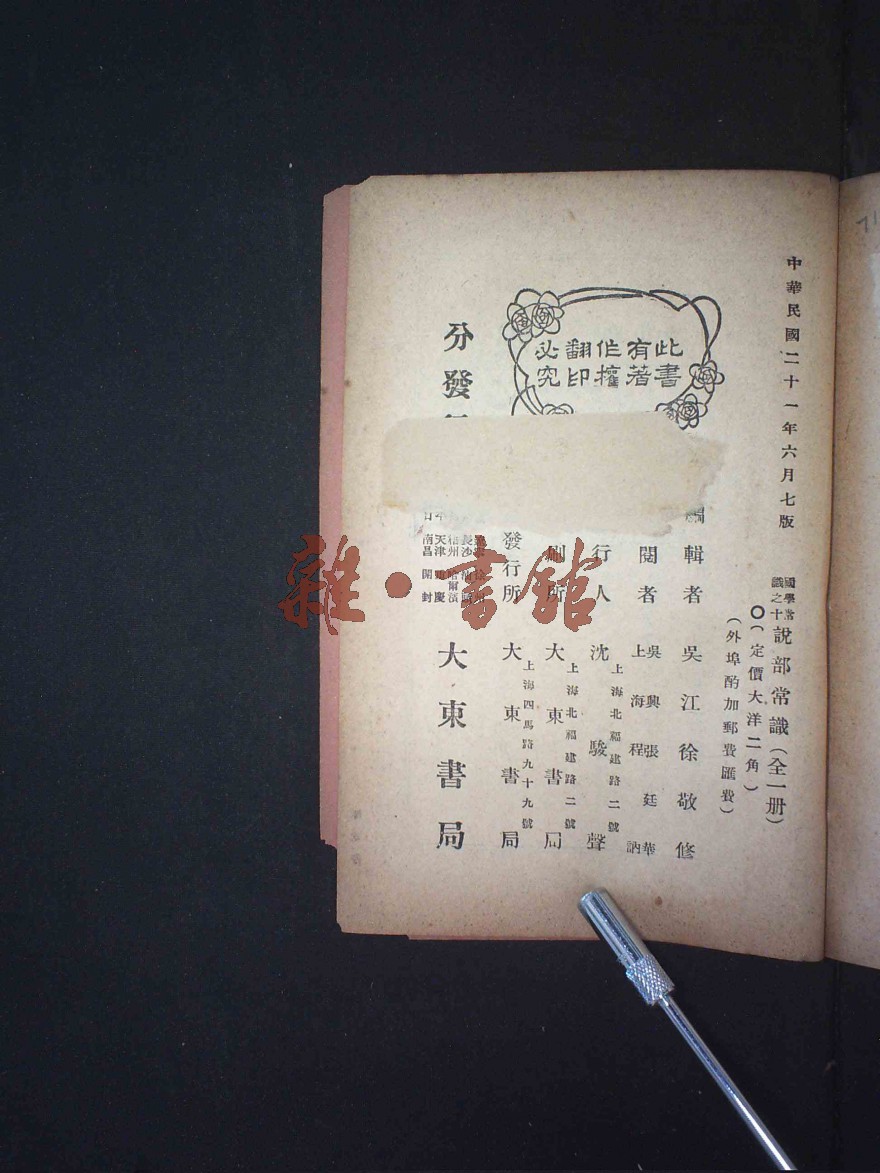 中華民國二十一年六月七版
國學常識之十
說部常識(全一册)
(定價大洋二角)
(外埠酌加郵費匯費)
此書
有著
作權
翻印
必究
輯者 吳江徐敬修
閱者 吳興張廷華
上海程 訥
行人 沈駿聲
上海北福建路二號
刷所 大東書局
上海北福建路二號
發行所 大東書局
上海四馬路九十九號
分發
長沙
天津
哈爾濱
南昌 開封
大東書局
雜·書館